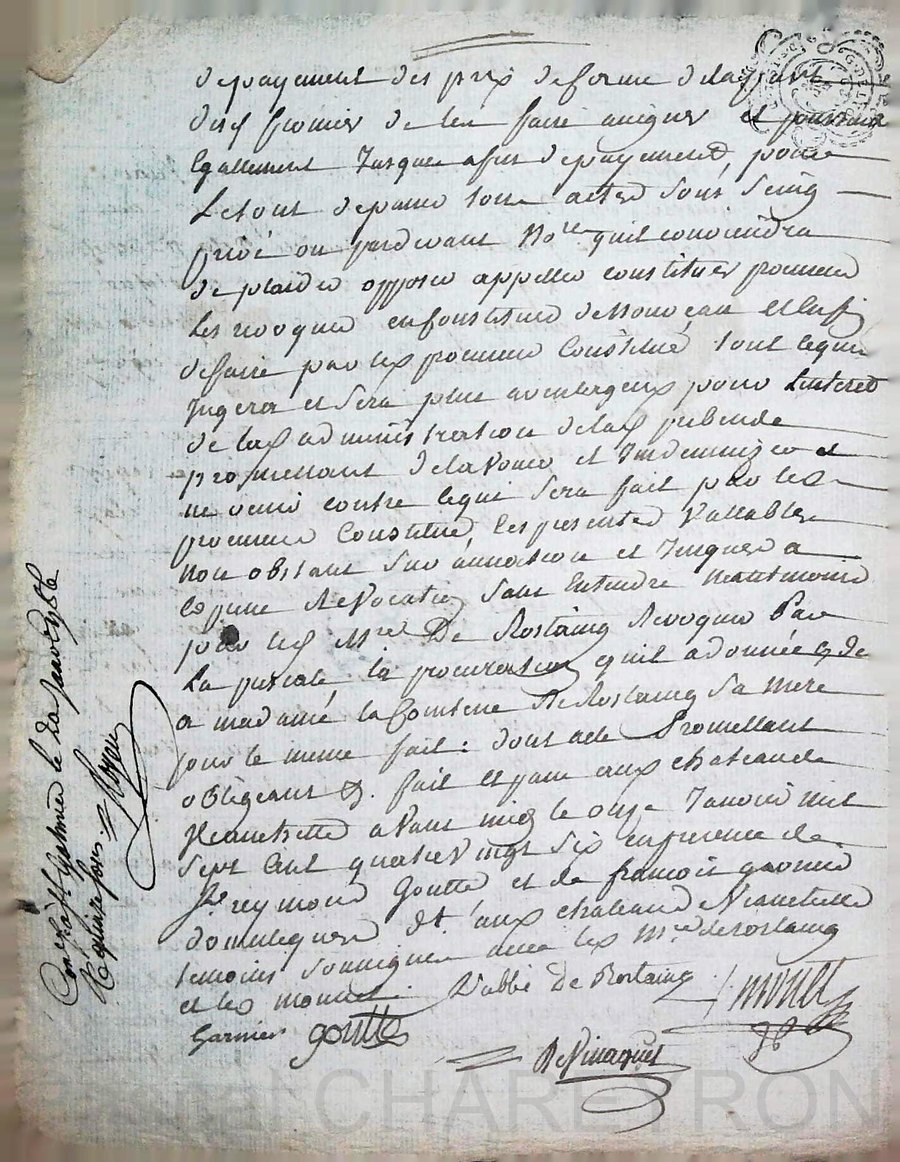 de payement des prix de ferme de lad prebende
dud fermier de len faire
Egallement Jusques a fin de payement, pour
Le tout de passer tous actes sous Seing
privé ou pardevant No.re quil conviendra
de plaider opposer appeller constituer procureur
Les revoquer en constituer de nouveau Et Enfin
de faire par led procureur Constitué tout ce quil
Jugera et Sera plus avantageux pour Linteret
de lad administration de lad prebende
promettant de lavouer et Indemniser et
ne venir contre ce qui Sera fait par led
procureur Constitué, les presentes Vallables
Non obstant Sur annation et Jusques a
Revocation Sans Entendre neantmoins
pour led M.re De Rostaing Revoquer Par
La presente la procuration quil a donnée
a madame la Comtesse de Rostaing Sa mere
pour le meme fait: dont acte Promettant
obligeant &. fait et passé aux chateau de
Veauchette avant midy le onze Janvier mil
Sept Cent quatrevingt Six en presence de
S.r reymond Goutte et de francois garnier
domestiques aux chateau de Veauchette
temoins Soussignes avec led M.re de Rostaing
et led monnet. L'abbé De Rostaing monet
Garnier goutte
Con.lé à S.t Galmier le Janv 1786
R quinze sous
Paul CHAREYRON